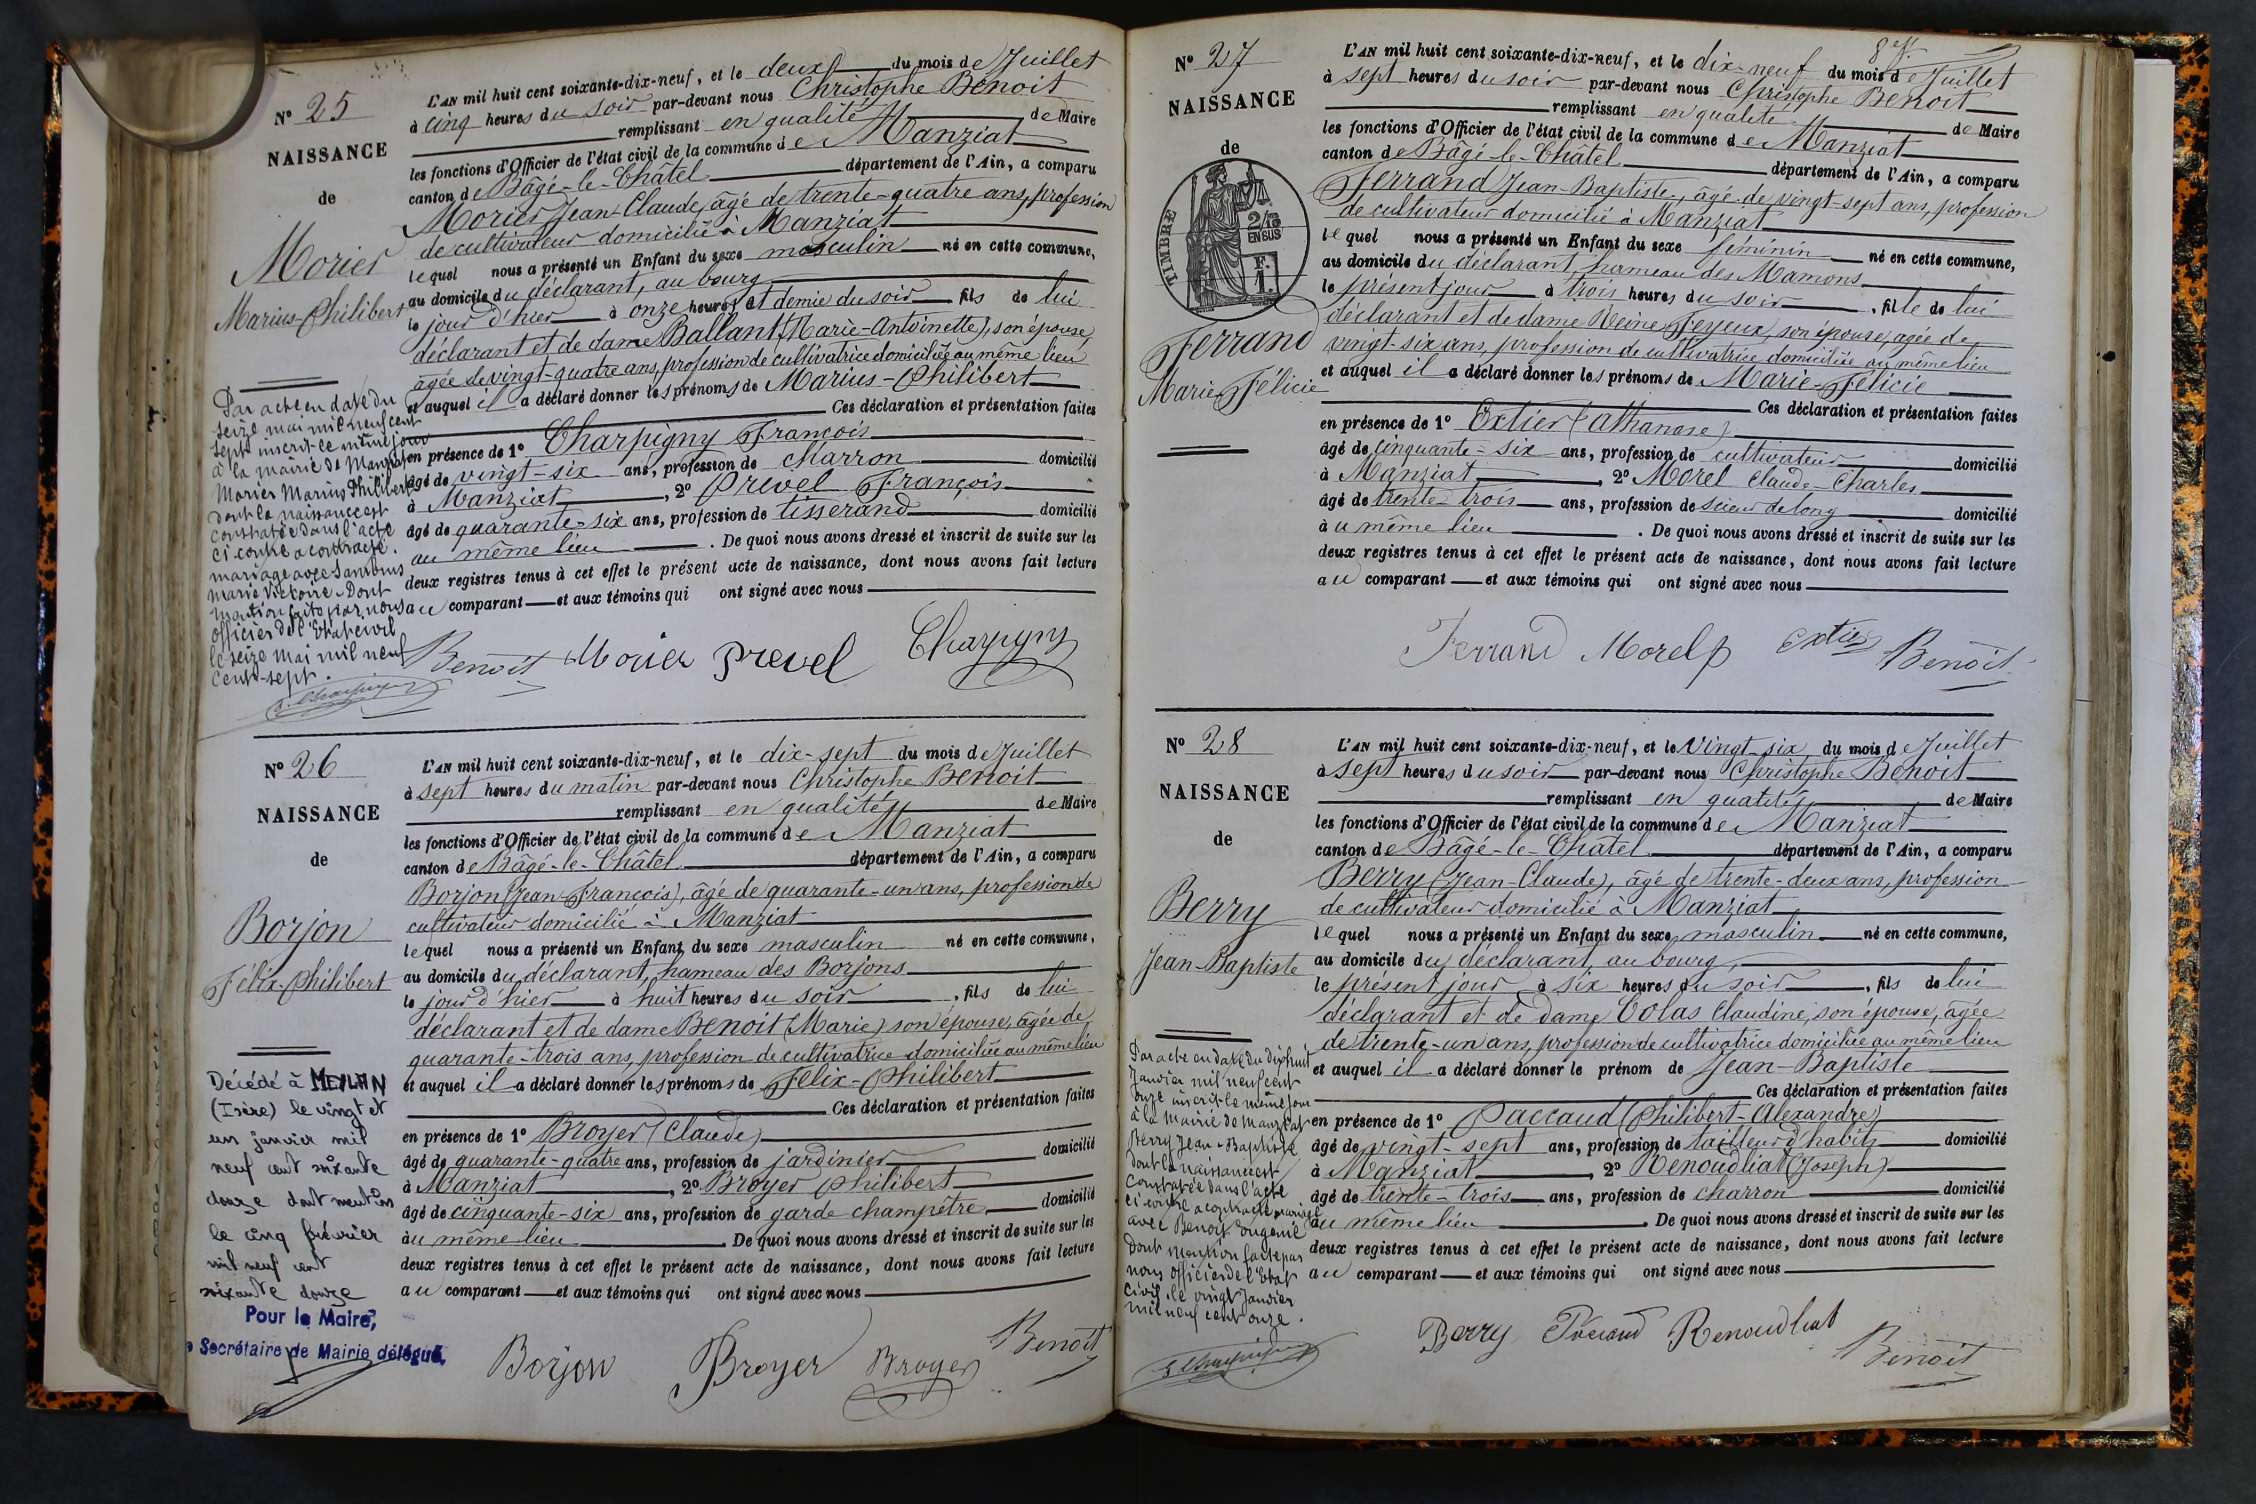 N° 25
NAISSANCE
de
Morier
Marius-Philibert
L'AN mil huit cent soixante-dix-neuf, et le deux du mois de Juillet
à cinq heures du soir par-devant nous Christophe Benoit
remplissant en qualité de Maire
les fonctions d'Officier de l'état civil de la commune de Manziat
canton de Bâgé-le-Châtel département de l'Ain, a comparu
Morier Jean-Claude, âgé de trente-quatre ans, profession
de cultivateur domicilié à Manziat
lequel nous a présenté un Enfant du sexe masculin né en cette commune,
au domicile du déclarant, au bourg
le jour d'hier à onze heures et demie du soir fils de lui
déclarant et de dame Ballant (Marie-Antoinette), son épouse,
âgée de vingt-quatre ans, profession de cultivatrice domiciliée au même lieu
et auquel il a déclaré donner les prénoms de Marius-Philibert
Ces déclaration et présentation faites
en présence de 1° Charpigny François
âgé de vingt-six ans, profession de charron domicilié
à Manziat, 2° Prevel François
âgé de quarante-six ans, profession de tisserand domicilié
au même lieu. De quoi nous avons dressé et inscrit de suite sur les
deux registres tenus à cet effet le présent acte de naissance, dont nous avons fait lecture
au comparant et aux témoins qui ont signé avec nous
Benoit Morier Prevel Charpigny
Par acte en date du
seize mai mil neuf cent
sept inscrit le même jour
à la mairie de Manziat
Morier Marius Philibert
dont la naissance est
constatée dans l'acte
ci contre a contracté
mariage avec
Marie Victoire. Dont
mention faite par nous
officier de l'Etat civil
le seize mai mil neuf
cent-sept.
N° 26
NAISSANCE
de
Borjon
Félix-Philibert
L'AN mil huit cent soixante-dix-neuf, et le dix-sept du mois de Juillet
à sept heures du matin par-devant nous Christophe Benoit
remplissant en qualité de Maire
les fonctions d'Officier de l'état civil de la commune de Manziat
canton de Bâgé-le-Châtel département de l'Ain, a comparu
Borjon (Jean-François), âgé de quarante-un ans, profession de
cultivateur domicilié à Manziat
lequel nous a présenté un Enfant du sexe masculin né en cette commune,
au domicile du déclarant, hameau des Borjons
le jour d'hier à huit heures du soir, fils de lui
déclarant et de dame Benoit (Marie) son épouse, âgée de
quarante-trois ans, profession de cultivatrice domiciliée au même lieu
et auquel il a déclaré donner les prénoms de Félix-Philibert
Ces déclaration et présentation faites
en présence de 1° Broyer (Claude)
âgé de quarante-quatre ans, profession de jardinier domicilié
à Manziat, 2° Broyer Philibert
âgé de cinquante-six ans, profession de garde champêtre domicilié
au même lieu. De quoi nous avons dressé et inscrit de suite sur les
deux registres tenus à cet effet le présent acte de naissance, dont nous avons fait lecture
au comparant et aux témoins qui ont signé avec nous
Borjon Broyer Broyer Benoit
Décédé à MEYLAN
(Isère) le vingt et
un janvier mil
neuf cent soixante
douze dont mention
le cinq février
mil neuf cent
soixante douze
Pour le Maire,
Secrétaire de Mairie délégué,
N° 27
NAISSANCE
de
TIMBRE
2/10
EN SUS
F.
1.
Ferrand
Marie-Félicie
L'AN mil huit cent soixante-dix-neuf, et le dix-neuf du mois de Juillet
à sept heures du soir par-devant nous Christophe Benoit
remplissant en qualité de Maire
les fonctions d'Officier de l'état civil de la commune de Manziat
canton de Bâgé-le-Châtel département de l'Ain, a comparu
Ferrand Jean-Baptiste, âgé de vingt-sept ans, profession
de cultivateur domicilié à Manziat
lequel nous a présenté un Enfant du sexe féminin né en cette commune,
au domicile du déclarant, hameau des Mamons
le présent jour à trois heures du soir, fille de lui
déclarant et de dame Reine Feyeux, son épouse, âgée de
vingt-six ans, profession de cultivatrice domiciliée au même lieu
et auquel il a déclaré donner les prénoms de Marie-Félicie
Ces déclaration et présentation faites
en présence de 1° Extier (Athanase)
âgé de cinquante-six ans, profession de cultivateur domicilié
à Manziat, 2° Morel Claude-Charles
âgé de trente-trois ans, profession de scieur de long domicilié
au même lieu. De quoi nous avons dressé et inscrit de suite sur les
deux registres tenus à cet effet le présent acte de naissance, dont nous avons fait lecture
au comparant et aux témoins qui ont signé avec nous
Ferrand Morel Extier Benoit
N° 28
NAISSANCE
de
Berry
Jean-Baptiste
L'AN mil huit cent soixante-dix-neuf, et le vingt-six du mois de Juillet
à sept heures du soir par-devant nous Christophe Benoit
remplissant en qualité de Maire
les fonctions d'Officier de l'état civil de la commune de Manziat
canton de Bâgé-le-Châtel département de l'Ain, a comparu
Berry (Jean-Claude), âgé de trente-deux ans, profession
de cultivateur domicilié à Manziat
lequel nous a présenté un Enfant du sexe masculin né en cette commune,
au domicile du déclarant au bourg,
le présent jour à six heures du soir, fils de lui
déclarant et de dame Colas Claudine, son épouse, âgée
de trente-un ans, profession de cultivatrice domiciliée au même lieu
et auquel il a déclaré donner le prénom de Jean-Baptiste
Ces déclaration et présentation faites
en présence de 1° Paccaud (Philibert-Alexandre)
âgé de vingt-sept ans, profession de tailleur d'habits domicilié
à Manziat, 2° Renoudliat (Joseph)
âgé de trente-trois ans, profession de charron domicilié
au même lieu. De quoi nous avons dressé et inscrit de suite sur les
deux registres tenus à cet effet le présent acte de naissance, dont nous avons fait lecture
au comparant et aux témoins qui ont signé avec nous
Berry Paccaud Renoudliat Benoit
Par acte en date du dix huit
Janvier mil neuf cent
onze inscrit le même jour
à la Mairie de Manziat
Berry Jean-Baptiste
dont la naissance est
constatée dans l'acte
ci contre a contracté mariage
avec Benoit Eugénie
Dont mention faite par
nous officier de l'Etat
civil le vingt Janvier
mil neuf cent onze.